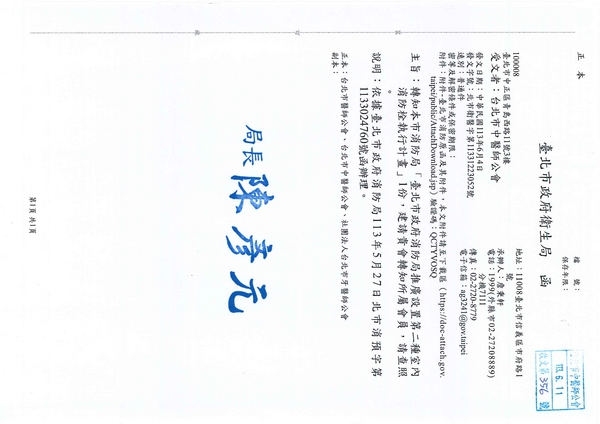 正本
檔　號：
保存年限：
臺北市政府衛生局　函
地址：11008臺北市信義區市府路1號
承辦人：詹東軒
電話：1999(外縣市02-27208889)分機7111
傳真：02-2720-8779
電子信箱：ag3241@gov.taipei
10008
臺北市中正區青島西路11號3樓
受文者：台北市中醫師公會
發文日期：中華民國113年6月4日
發文字號：北市衛醫字第11331223052號
速別：普通件
密等及解密條件或保密期限：
附件：附件-臺北市消防原函及其附件，本文附件請至下載區（https://doc-attach.gov.
taipei/public/AttachDownload.jsp）驗證碼：QCTYVOSQ
主旨：轉知本市消防局「臺北市政府消防局推廣設置第二種室內
消防栓執行計畫」1份，建請貴會轉知所屬會員，請查照
。
說明：依據臺北市政府消防局113年5月27日北市消預字第
1133024760號函辦理。
正本：台北市醫師公會、台北市中醫師公會、社團法人台北市牙醫師公會
副本：
局長 陳彥元
中醫師公會
113. 6. 11
收文第356號
第1頁 共1頁
裝
訂
線